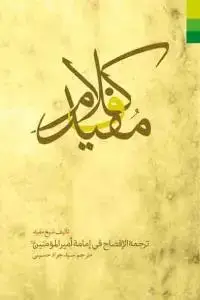 کلام
مفید
تألیف شیخ مفید
ترجمة الإفصاح في إمامة أمیرالمؤمنین
مترجم سید جواد حسینی